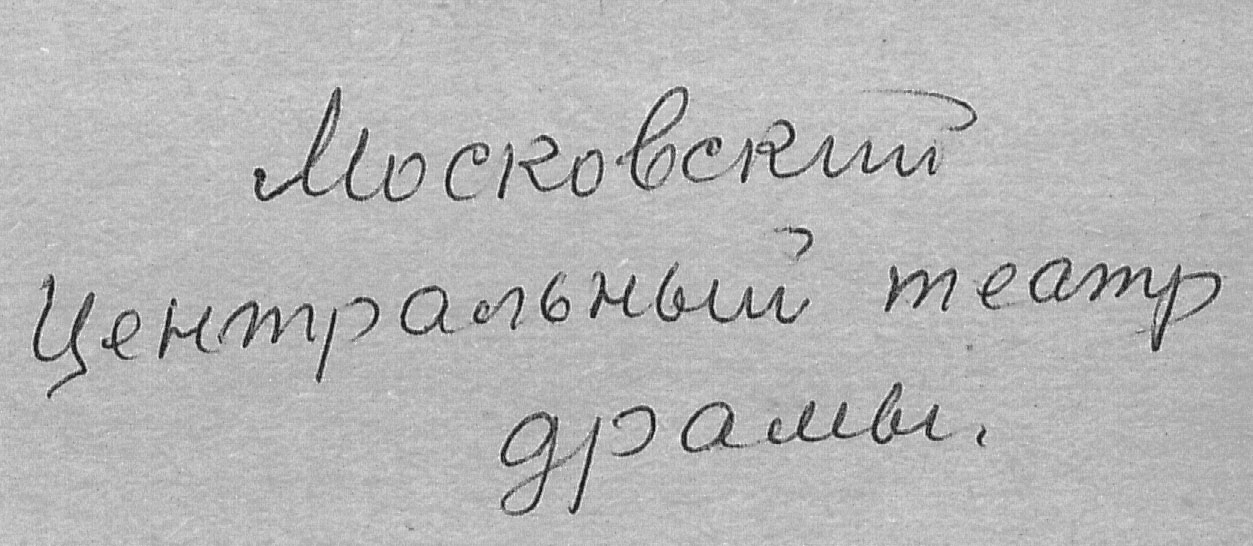 Московский
Центральный театр
драмы.